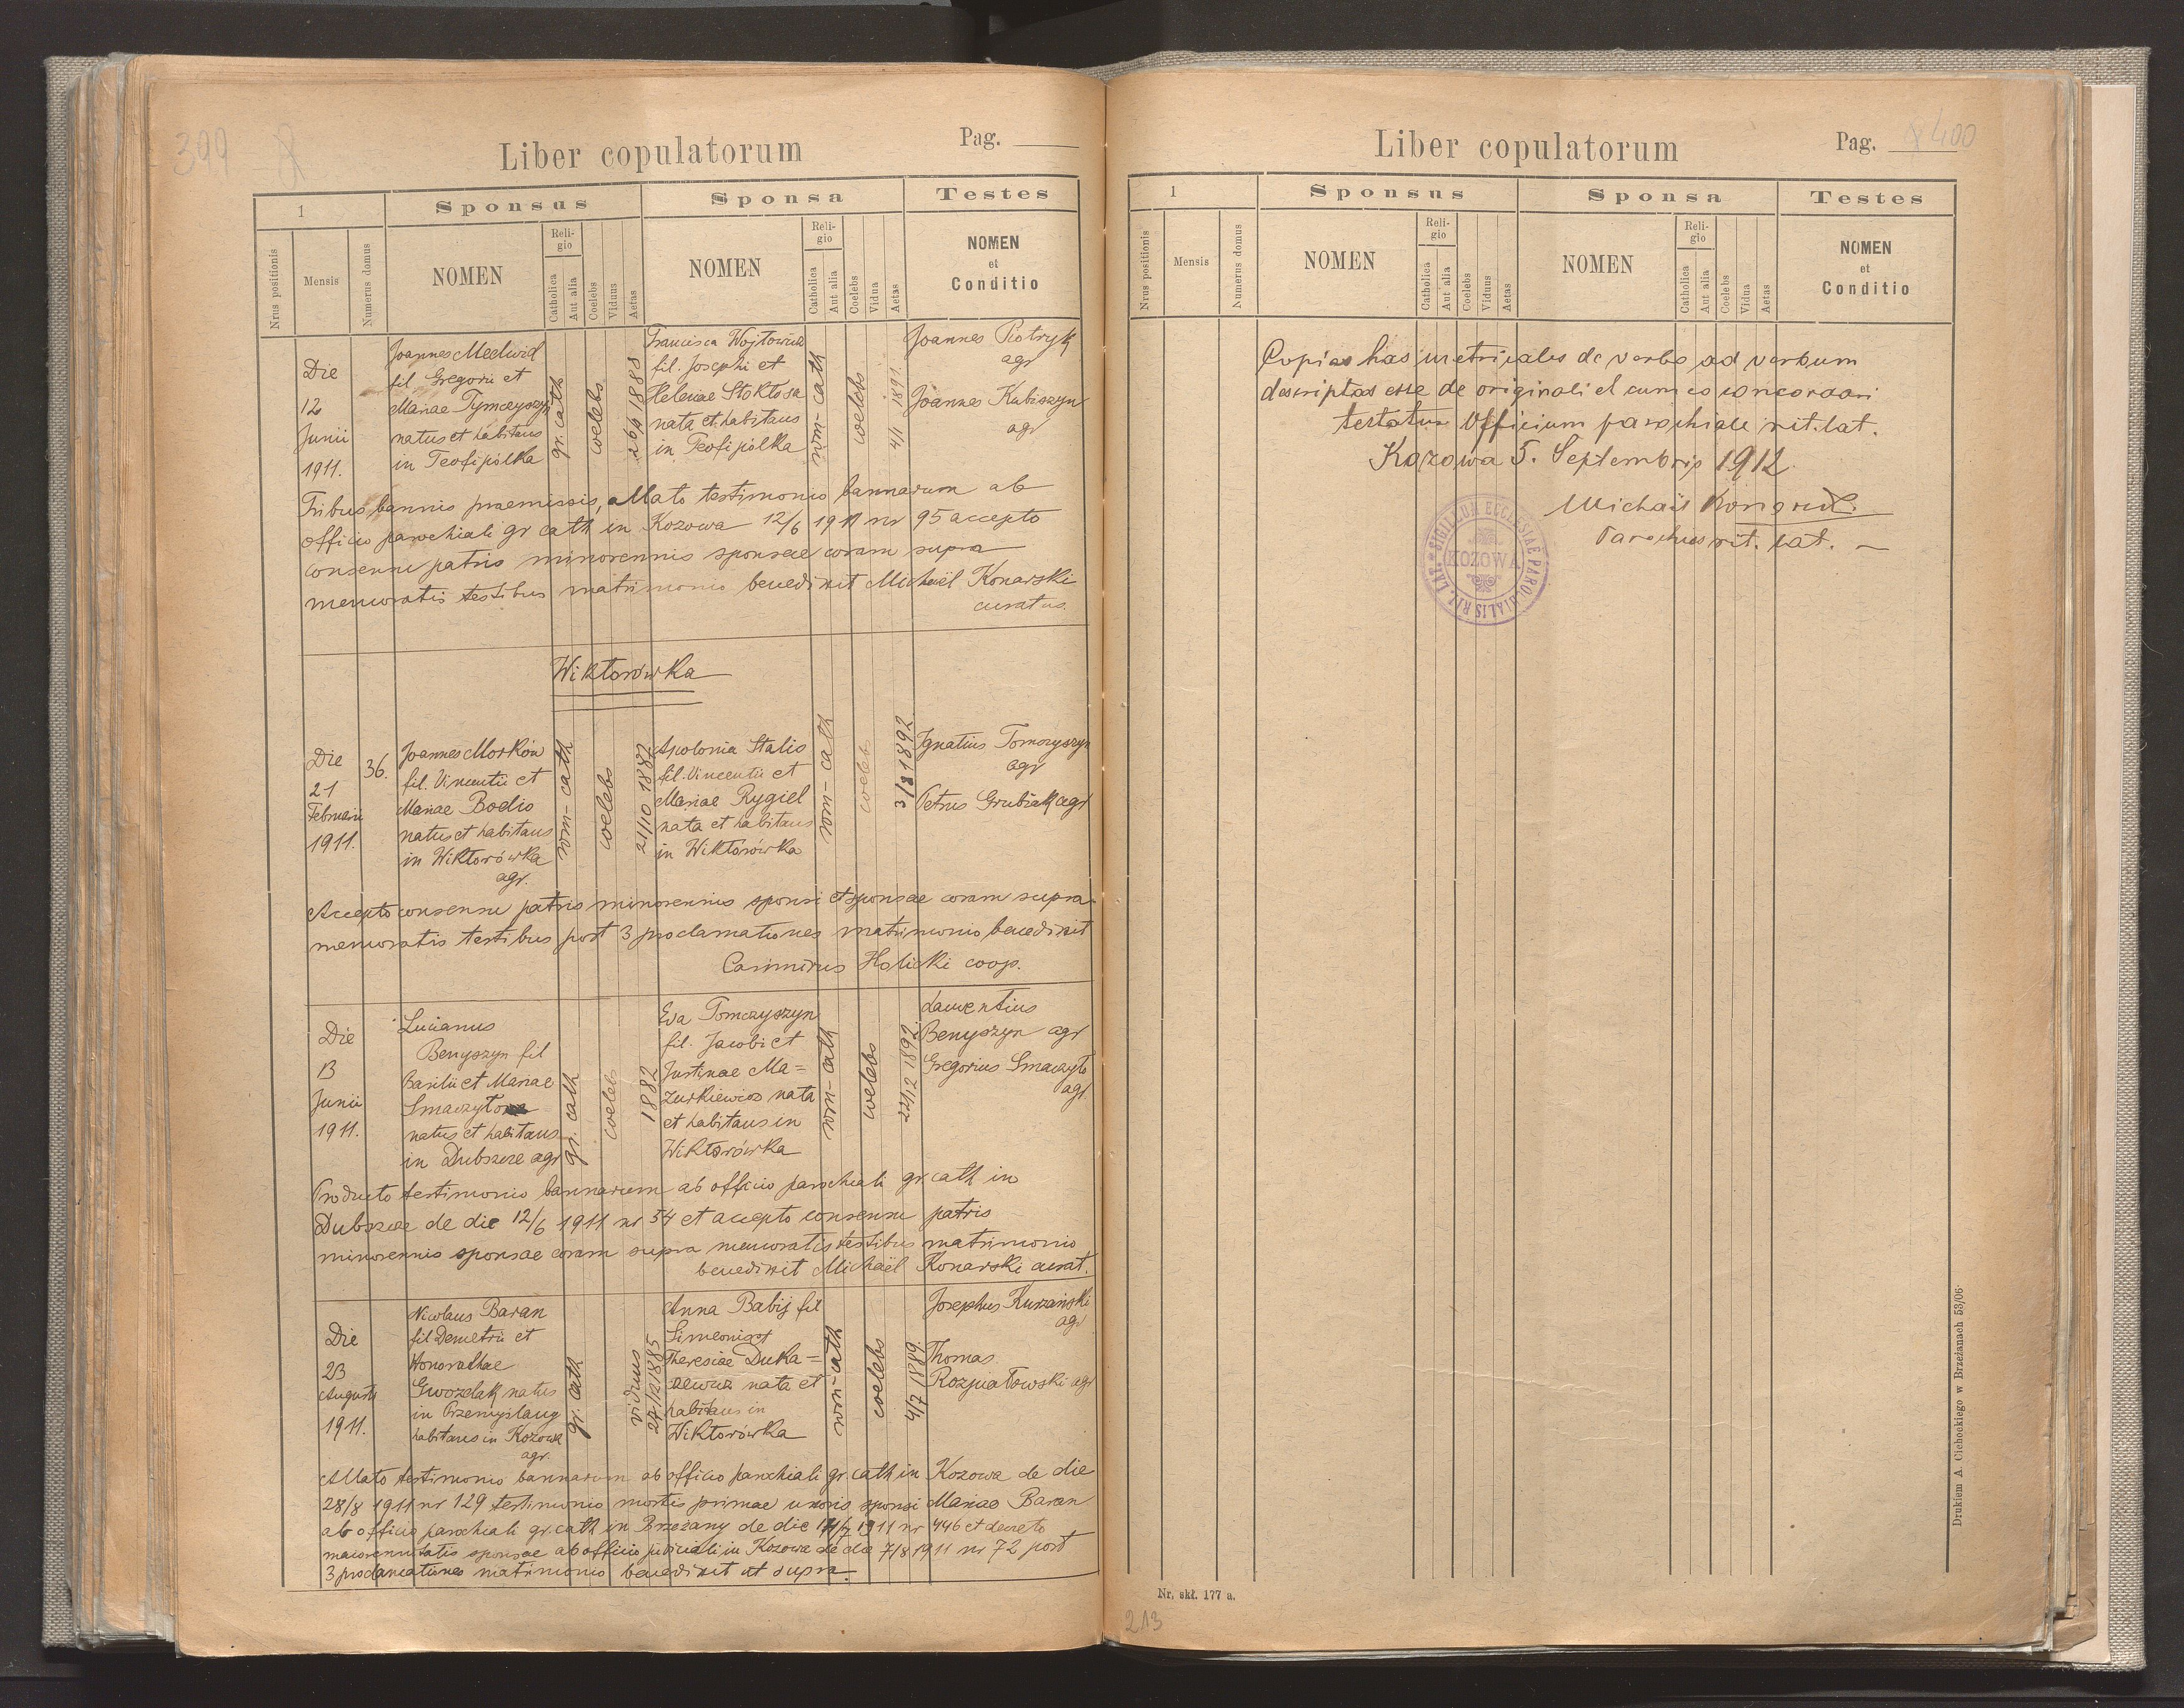 399
Liber copulatorum
Pag.
1
Sponsus
Sponsa
Testes
Nrus positionis
Mensis
Numerus domus
NOMEN
Reli-
gio
Catholica
Aut alia
Coelebs
Viduus
Aetas
NOMEN
Reli-
gio
Catholica
Aut alia
Coelebs
Vidua
Aetas
NOMEN
et
Conditio
Die
12
Junii
1911.
Joannes Medwid
fil Gregorii et
Mariae Tymczyszyn
natus et habitans
in Teofipólka
gr. cath
coelebs
1888
Francisca Wojtowicz
fil. Josephi et
Helenae Stokłosa
nata et habitans
in Teofipólka
rom-cath
coelebs
4/1 1891.
Joannes Piotryk
agr
Joannes Kubiszyn
agr
Tribus bannis praemissis, allato testimonio bannarum ab
officio parochiali gr cath in Kozowa 12/6 1911 nr 95 accepto
consensu patris minorennis sponsae coram supra
memoratis testibus matrimonio benedixit Michaël Konarski
curatus.
Wiktorówka
Die
21
Februarii
1911.
36.
Joannes Morków
fil. Vincentii et
Mariae Bodio
natus et habitans
in Wiktorówka
agr.
rom-cath
coelebs
21/10 1887
Apolonia Stalis
fil. Vincentii et
Mariae Rygiel
nata et habitans
in Wiktorówka
rom-cath
coelebs
3/8 1892
Ignatius Tomczyszyn
agr
Petrus Grubiak agr
Accepto consensu patris minorennis sponsi et sponsae coram supra
memoratis testibus post 3 proclamationes matrimonio benedixit
Casimirus Holicki coop.
Die
13
Junii
1911.
Lucianus
Benyszyn fil
Basilii et Mariae
Smaczyło
natus et habitans
in Dubszcze agr
gr. cath
coelebs
1882
Eva Tomczyszyn
fil. Jacobi et
Justinae Ma=
zurkiewicz nata
et habitans in
Wiktorówka
rom-cath
coelebs
22/12 1892
Laurentius
Benyszyn agr
Gregorius Smaczyło
agr.
Producto testimonio bannarum ab officio parochiali gr. cath in
Dubszcze de die 12/6 1911 nr 54 et accepto consensu patris
minorennis sponsae coram supra memoratis testibus matrimonio
benedixit Michaël Konarski curat.
Die
23
Augusti
1911.
Nicolaus Baran
fil Demetrii et
Honorathae
Gwozdak natus
in Przemyślany
habitans in Kozowa
agr.
gr. cath
viduus
24/12 1885
Anna Babij fil
Simeonis et
Theresiae Duka=
newicz nata et
habitans in
Wiktorówka
rom-cath
coelebs
4/7 1889.
Josephus Kurzański
agr
Thomas
agr
Allato testimonio bannarum ab officio parochiali gr. cath in Kozowa de die
28/8 1911 nr 129 testimonio mortis primae uxoris sponsi Mariae Baran
ab officio parochiali gr. cath in Brzeżany de die 1911 nr 446 et decreto
maiorennitatis sponsae ab officio judiciali in Kozowa de die 7/8 1911 nr 72 post
3 proclamationes matrimonio benedixit ut supra.
Liber copulatorum
Pag. 400
1
Sponsus
Sponsa
Testes
Nrus positionis
Mensis
Numerus domus
NOMEN
Reli-
gio
Catholica
Aut alia
Coelebs
Viduus
Aetas
NOMEN
Reli-
gio
Catholica
Aut alia
Coelebs
Vidua
Aetas
NOMEN
et
Conditio
Copias has metricales de verbo ad verbum
descriptas esse de originali et cum eo concordari
testatur Officium parochiale rit. lat.
Kozowa 5. Septembris 1912.
Michaël
Parochus rit. lat.
SIGILLUM ECCLESIAE PAROCHIALIS RIT. LAT.
KOZOWA
Drukiem A. Cichockiego w Brzeżanach 53/06
Nr. skł. 177 a.
213